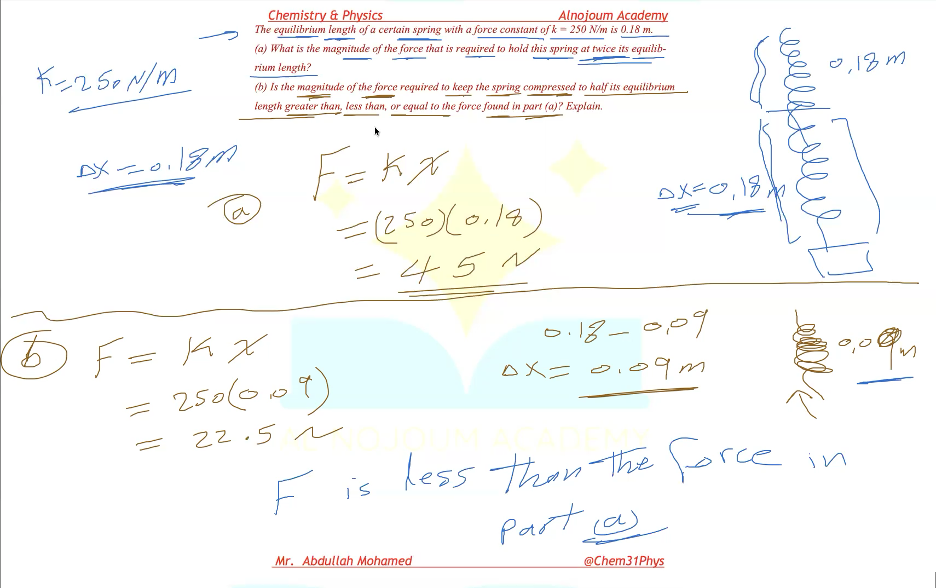 Chemistry & Physics
Alnojoum Academy
The equilibrium length of a certain spring with a force constant of k = 250 N/m is 0.18 m.
(a) What is the magnitude of the force that is required to hold this spring at twice its equilib-
rium length?
(b) Is the magnitude of the force required to keep the spring compressed to half its equilibrium
length greater than, less than, or equal to the force found in part (a)? Explain.
K = 250 N/m
0,18 m
Δx = 0.18 m
Δx = 0,18 m
a
F = K x
= (250)(0.18)
= 45 N
b
F = K x
= 250(0.09)
= 22.5 N
0.18 - 0,09
Δx = 0.09 m
0,09 m
ALNOJOUM ACADEMY
F is less than the force in
part (a)
Mr. Abdullah Mohamed
@Chem31Phys